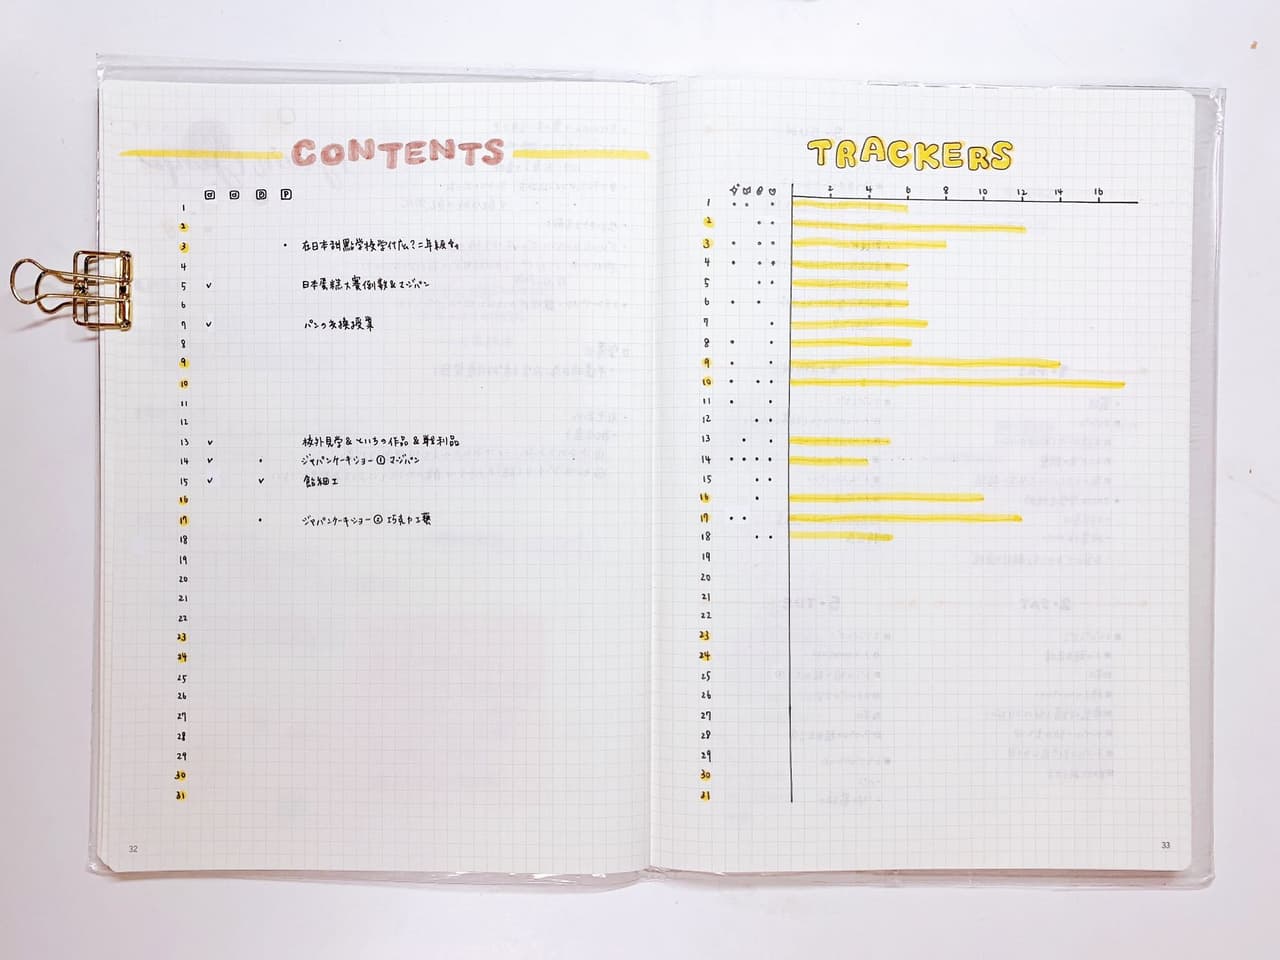 CONTENTS
D P
1
2
3 在日本甜點学校学什么?二年級
4
5 日本蛋糕大賽倒数&マジパン
6
7 パンの交換授業
8
9
10
11
12
13 校外見学&といちの作品&戦利品
14 ジャパンケーキショー① マジパン
15 飴細工
16
17 ジャパンケーキショー② 巧克力工藝
18
19
20
21
22
23
24
25
26
27
28
29
30
31
32
TRACKERS
2 4 6 8 10 12 14 16
1
2
3
4
5
6
7
8
9
10
11
12
13
14
15
16
17
18
19
20
21
22
23
24
25
26
27
28
29
30
31
33